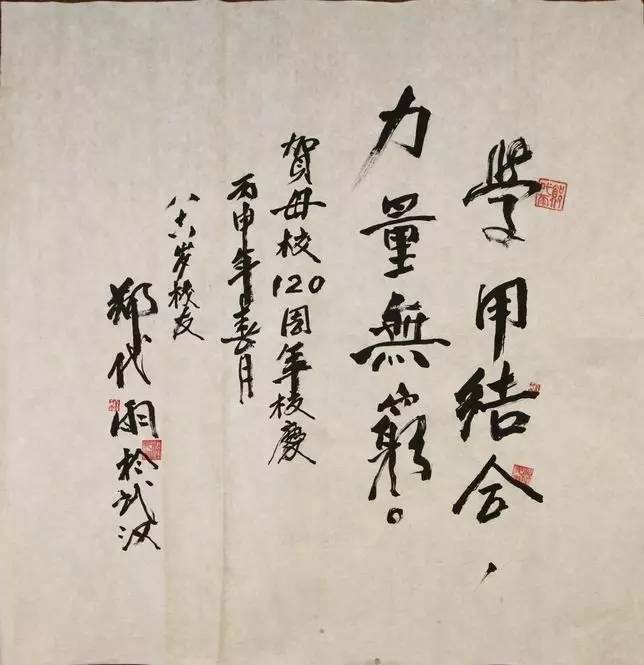 學用結合，
力量無窮。
賀母校120周年校慶
丙申年春月
八十六岁校友
郑代雨於武汉